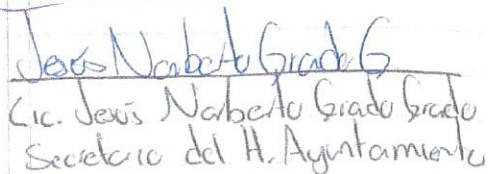 Jesús Norberto Grado G
Lic. Jesús Norberto Grado Grado
Secretario del H. Ayuntamiento